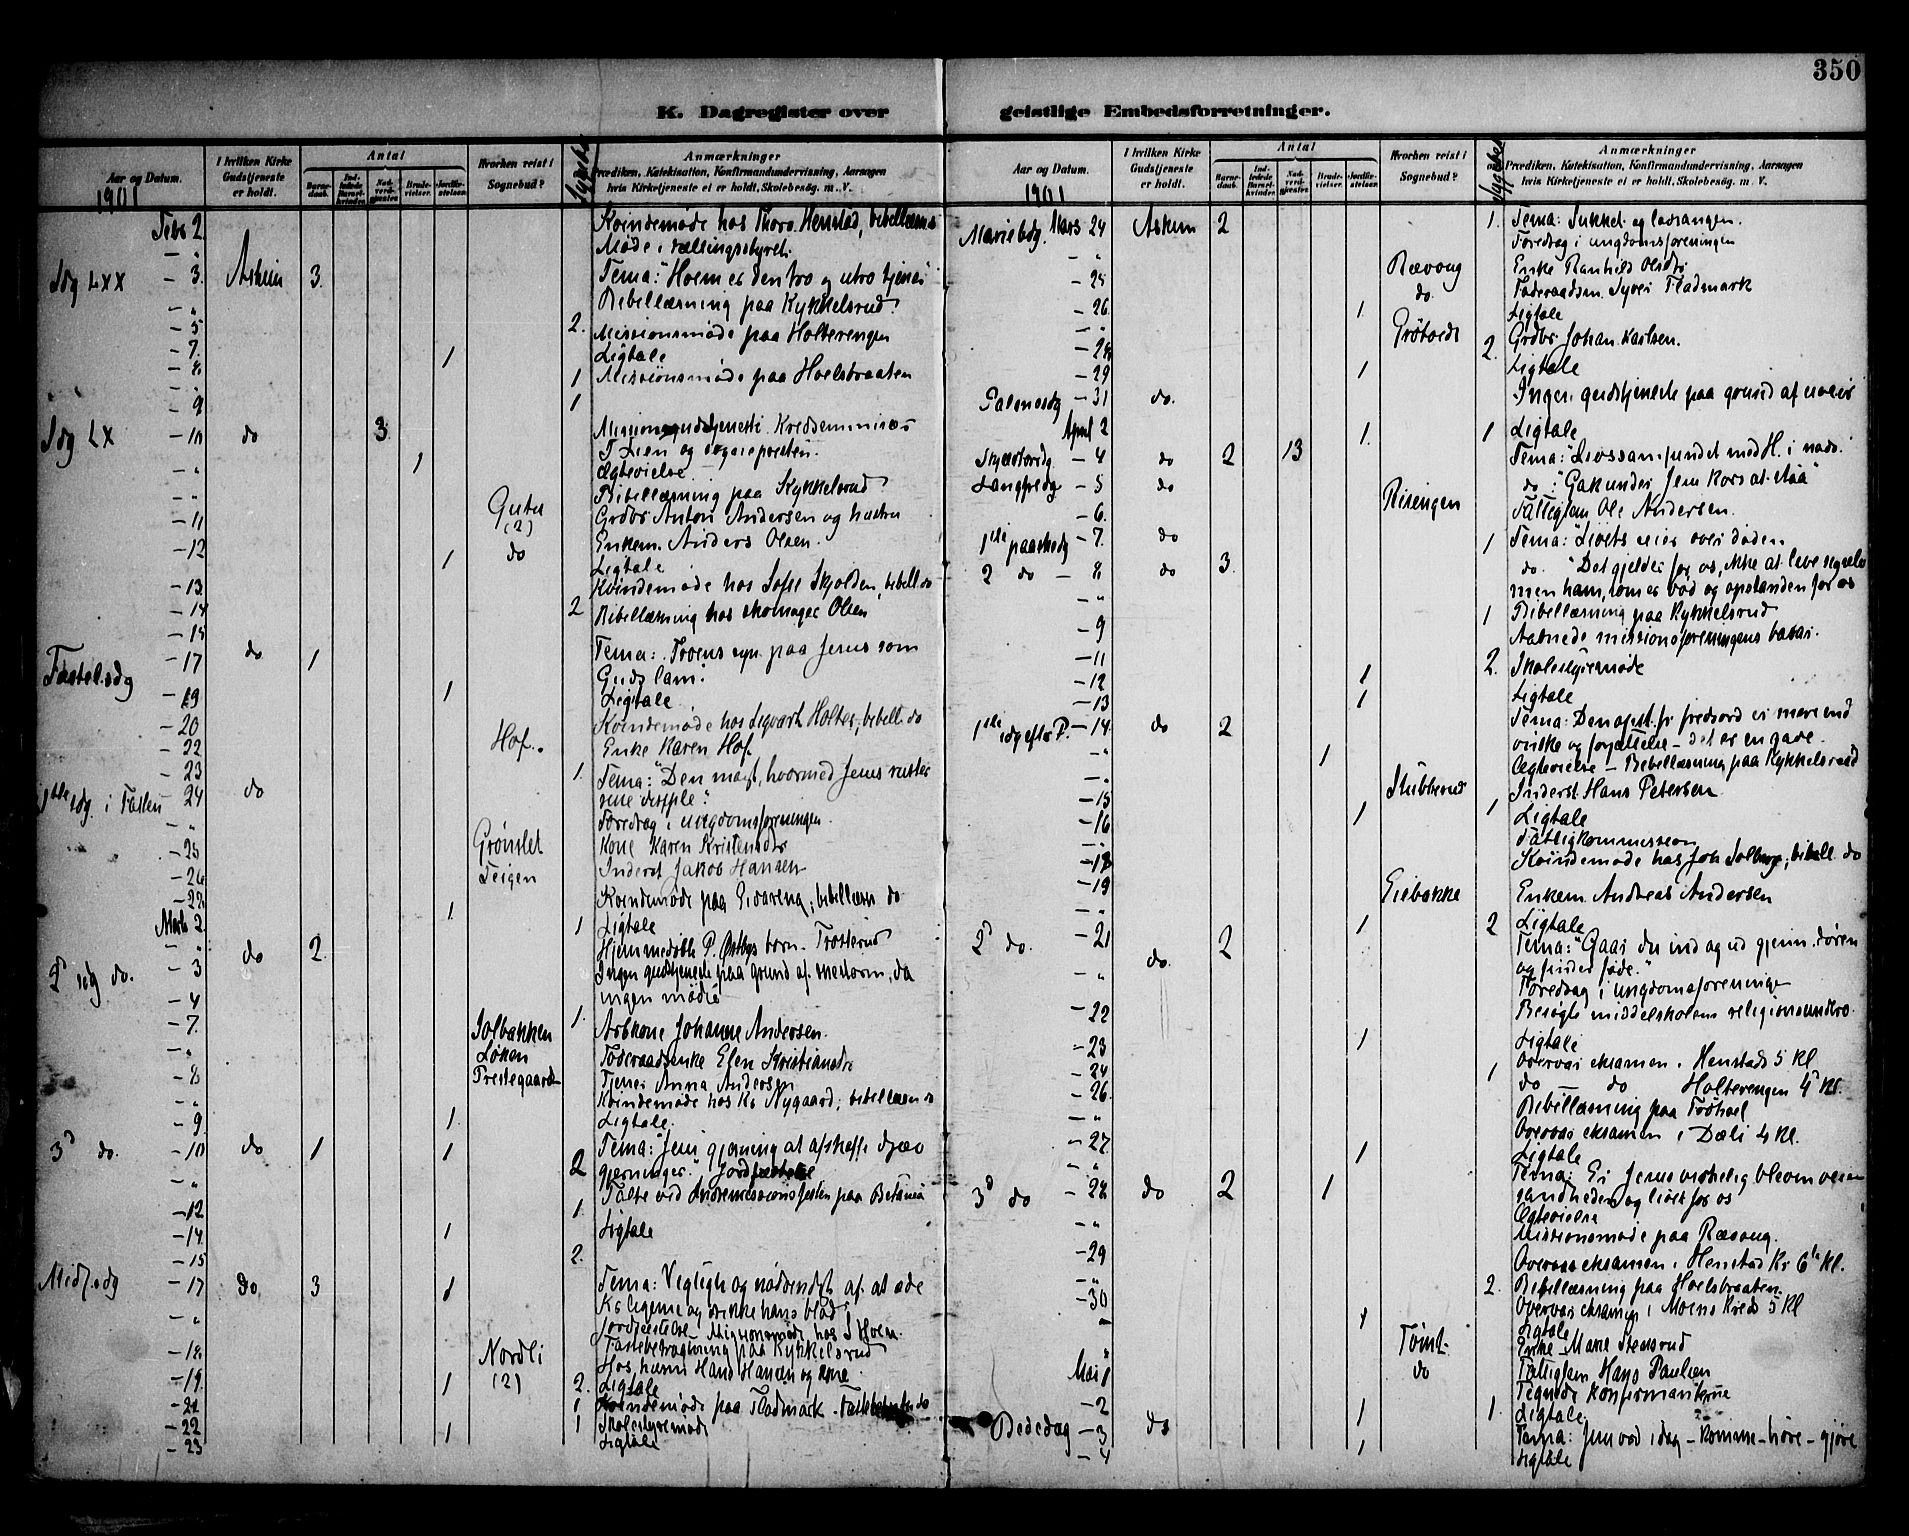 350
K. Dagregister over geistlige Embedsforretninger.
Aar og Datum.
I hvilken Kirke Gudstjeneste er holdt.
Antal
Barnedaab.
Indledede Barselkvinder.
Nadverdgjester.
Brudevielser.
Jordfæstelser.
Hvorhen reist i Sognebud?
Anmærkninger
Prædiken, Katekisation, Konfirmandundervisning, Aarsagen
hvis Kirketjeneste ei er holdt, Skolebesøg. m. V.
1901
Febr 2 Kvindemøde hos Thorv. Henstad, bibellæsn
- " Møde i
Sdg LXX - 3. Askim 3. Tema: Hvem er den tro og utro tjener
- " Bibellæsning paa Kykkelsrud
- 5 2. Missionsmøde paa Holterengen
- 7. 1 Ligtale
- 8 1 Missionsmøde paa Hoelsbraaten
- "
- 9 1
Sdg LX - 10 do 3. Missionsgudstjeneste
T. Lien og sognepresten.
- " 1 Ægtevielse
- " Bibellæsning paa Kykkelsrud
- 11 Guta (2) Grdbr Anton Andersen og hustru
- 12 do Enkem. Anders Olsen.
1 Ligtale
- 13. Kvindemøde hos Sofie Skjolden, bibell. do
- 14 2 Bibellæsning hos skomager Olsen
- 15
Fastel.sdg - 17 do 1 Tema: Troens syn paa Jesus som
Guds lam.
- 19 1 Ligtale
- 20 Kvindemøde hos Sigvart Holter, bibell. do
- 22 Hof. Enke Karen Hof.
- 23 1.
1ste sdg. i Fasten 24 do Tema: "Den magt, hvormed Jesus ruster
sine disciple."
- " Foredrag i ungdomsforeningen
- 25 Grønslet Kone Karen Kristensdtr
- 26 Teigen Inderst Jakob Hansen
- 27 Kvindemøde paa Eidareng, bibellæsn do
Marts 2 1. 1 Ligtale
- " Hjemmedøbte P. Østbys barn. Trosterud
2d sdg do. - 3 do 2. Ingen gudstjeneste paa grund af snestorm, da
ingen mødte
- 4 1.
- 7. Solbakken Arbkone Johanne Andersen.
- " Løken Føderaadsenke Elen Kristiansdtr
- 8 Prestegaard Tjener Anna Andersen
- " Kvindemøde hos Kr Nygaard; bibellæsn do
- 9 1. Ligtale.
3d do. - 10 do 1 1 Tema: Jesu gjerning at afskaffe djæv
2 gjerninger." Jordfæstelse
- " Talte ved Indremissionsfesten paa Betania
- 12 1.
- 14. 1 Ligtale
- 15 2.
Midf.sdg - 17 do 3 1 Tema: Vigtigh og nødvendgh af at æde
Kr legeme og drikke hans blod
- " Jordfæstelse - Missionsmøde hos S Hoen.
Fastebetragtning paa Kykkelsrud
- 18 Nordli (2) Hos husm Hans Hansen og kone
- 19. 1 2. Ligtale
- 21 1 Kvindemøde paa Fladmark -
- 22 1 Skolestyremøde
- 23 1 Ligtale
Aar og Datum.
I hvilken Kirke Gudstjeneste er holdt.
Antal
Barnedaab.
Indledede Barselkvinder.
Nadverdgjester.
Brudevielser.
Jordfæstelser.
Hvorhen reist i Sognebud?
Anmærkninger
Prædiken, Katekisation, Konfirmandundervisning, Aarsagen
hvis Kirketjeneste ei er holdt, Skolebesøg. m. V.
1901
Mariebdg. Mars 24 Askim 2 1. Tema: Sukket og lovsangen.
- " Foredrag i ungdomsforeningen
- 25 Rævaug Enke Ranhild Olsdtr
do. Føderaadsm. Syver Fladmark
- 26 1 Ligtale
- " Grøtvedt Grdbr Johan Karlsen.
- 28 2.
- 29 1 Ligtale
Palmesdg - 31 do. Ingen gudstjeneste paa grund af uveir
April 2 1. 1 Ligtale
Skjærtorsdg - 4 do 2 13 Tema:
Langfredg - 5 do do "Gak under Jesu kors at staa"
- 6. Risengen Fattiglem Ole Andersen.
1ste paaskedg - 7. do 1 Tema: Livets seier over døden
2 do - 8 do 3. do. "Det gjelder for os, ikke at leve sig selv
men ham, som er død og opstanden for os
- " 1 Bibellæsning paa Kykkelsrud
- 9 Aabnede missionsforeningens basar.
- 11 2. Skolestyremøde
- 12 1 Ligtale
- 13 1
1ste sdg efter P. - 14 do 2 Tema: fredsord er mere end
ønske og forjættelse - det er en gave.
- " 1 Ægtevielse - Bibellæsning paa Kykkelsrud
- " Stubberud Inderst Hans Petersen
- 15 1 1 Ligtale
- 16 Fattigkommission
- " Kvindemøde hos Joh Solberg; bibell. do
- 18
- 19 Eiebakke Enkem Andreas Andersen
- " 1 2 Ligtale
2d do. - 21 do. 2 Tema: "Gaar du ind og ud gjenn. døren
og finder føde."
- " Foredrag i ungdomsforeningen
- 22 Besøgte middelskolens religionsunderv.
- 23 1 Ligtale
- 24 1 Overvar eksamen i Henstad 5 kl
- 26 do - do Holterengen 4d kl.
- " Bibellæsning paa Frøhoel
- 27 Overvar eksamen i Dæli 4 kl.
- " 1 Ligtale
3d do - 28 do 2 1 Tema: Er Jesus virkelig bleven veien
sandheden og livet for os
Ægtevielse
- " Missionsmøde paa Ræsaug.
- 29 Overvar eksamen i Henstad Kr 6te kl.
- " 2. Bibellæsning paa Hoelsbraaten
- 30 Overvar eksamen i Moens kreds 5 kl
- " 1 Ligtale
" Tømt. Enke Marie Stensrud
Mai 1 do Fattiglem Hans Paulsen
Tegnede konfirmanterne
- 2 1 1. Ligtale
Bededag - 3 do Tema: Jesu ord idag - komme - høre - gjøre
- 4 1 Ligtale